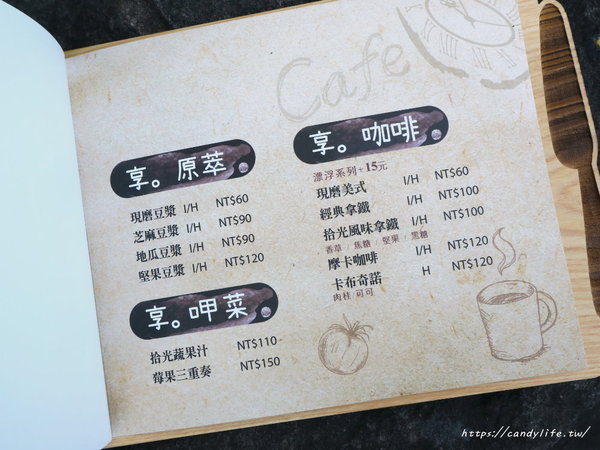 Cafe
享。原萃
現磨豆漿 I/H NT$60
芝麻豆漿 I/H NT$90
地瓜豆漿 I/H NT$90
堅果豆漿 I/H NT$120
享。呷菜
拾光蔬果汁 NT$110
莓果三重奏 NT$150
享。咖啡
漂浮系列+15元
現磨美式 I/H NT$60
經典拿鐵 I/H NT$100
拾光風味拿鐵 I/H NT$100
香草 / 焦糖 / 堅果 / 黑糖
摩卡咖啡 I/H NT$120
卡布奇諾 H NT$120
肉桂/可可
https://candylife.tw/